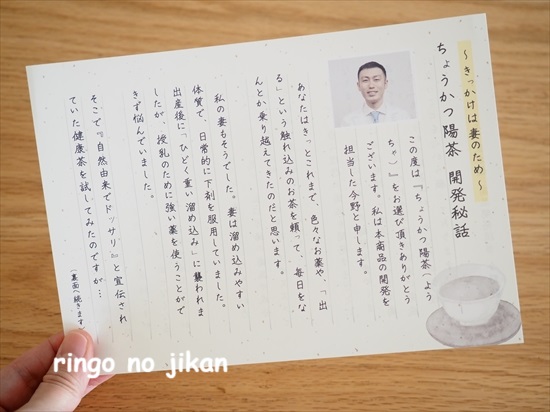 ～きっかけは妻のため～
ちょうかつ陽茶 開発秘話
この度は『ちょうかつ陽茶（よう
ちゃ）』をお選び頂きありがとう
ございます。私は本商品の開発を
担当した今野と申します。
あなたはきっとこれまで、色々なお薬や、「出
る」という触れ込みのお茶を頼って、毎日をな
んとか乗り越えてきたのだと思います。
私の妻もそうでした。妻は溜め込みやすい
体質で、日常的に下剤を服用していました。
出産後に「ひどく重い溜め込み」に襲われま
したが、授乳のために強い薬を使うことがで
きず悩んでいました。
そこで『自然由来でドッサリ♪』と宣伝され
ていた健康茶を試してみたのですが…
（裏面へ続きます
ringo no jikan